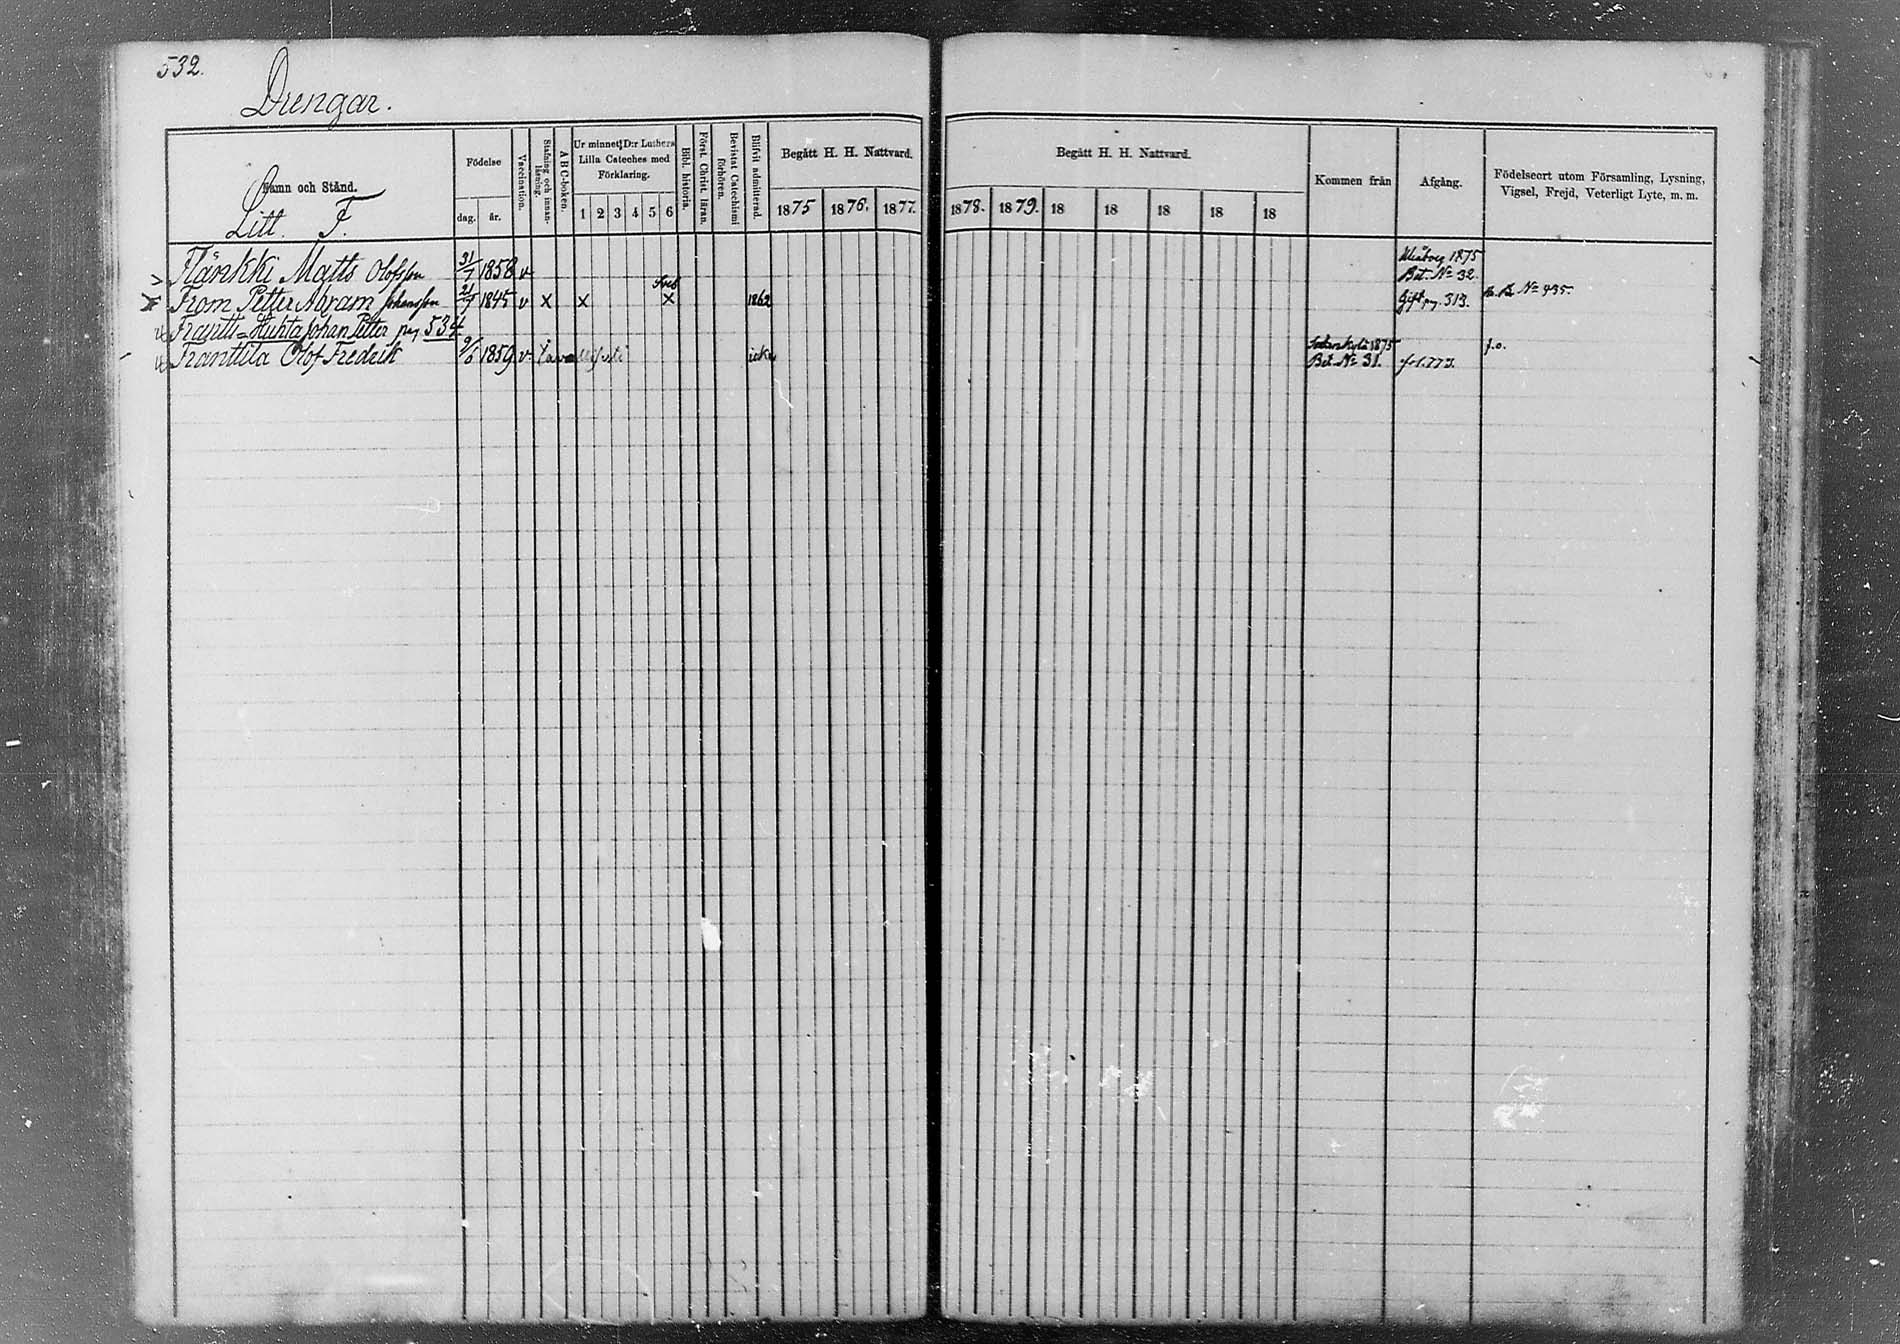 532.
Drengar.
Namn och Stånd.
Litt. F.
Födelse
dag. år.
Vaccination.
Stafning och innan-
läsning.
A B C-boken.
Ur minnet D:r Luthers
Lilla Cateches med
Förklaring.
1 2 3 4 5 6
Bibl. historia.
Först. Christ. läran.
Bevistat Catechismi
förhören.
Blifvit admitterad.
Begått H. H. Nattvard.
1875 1876. 1877.
Begått H. H. Nattvard.
1878. 1879. 18 18 18 18 18
Kommen från
Afgång.
Födelseort utom Församling, Lysning,
Vigsel, Frejd, Veterligt Lyte, m. m.
Flänkki Matts Olofsson 31/7 1858 v Uleåborg 1875
Bet. No 32
From Petter Abram Johansson 21/7 1845 v x x Sveb x 1862 Gift pag. 313. No 435.
Frantti=Huhta Johan Petter pag 534
Franttila Olof Fredrik 9/6 1859 v. icke 1875
Bet. No 31. f.o.